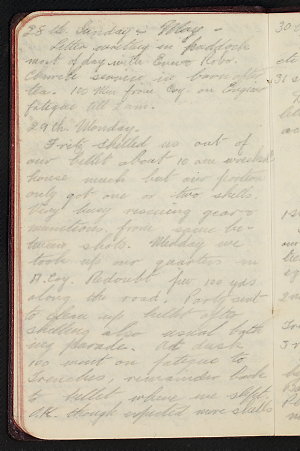 28th Sunday - May -
Letter writing in paddock
most of day with Ern & Robo.
Church service in barn after
tea. 100 men from Coy. on Engineer
fatigue till 2 am.
29th. Monday.
Fritz shelled us out of
our billet about 10 am wrecked
house much but our portion
only got one or two shells.
Very busy rescuing gear &
munitions from same be-
tween shots. Midday we
took up our quarters in
A. Coy. Redoubt few 100 yds
along the road. Party sent
to clean up billet after
shelling also usual bath
ing parade. At dusk
100 went on fatigue to
trenches, remainder back
to billet where we slept
OK. though expected more shells
30
31
1s
2n